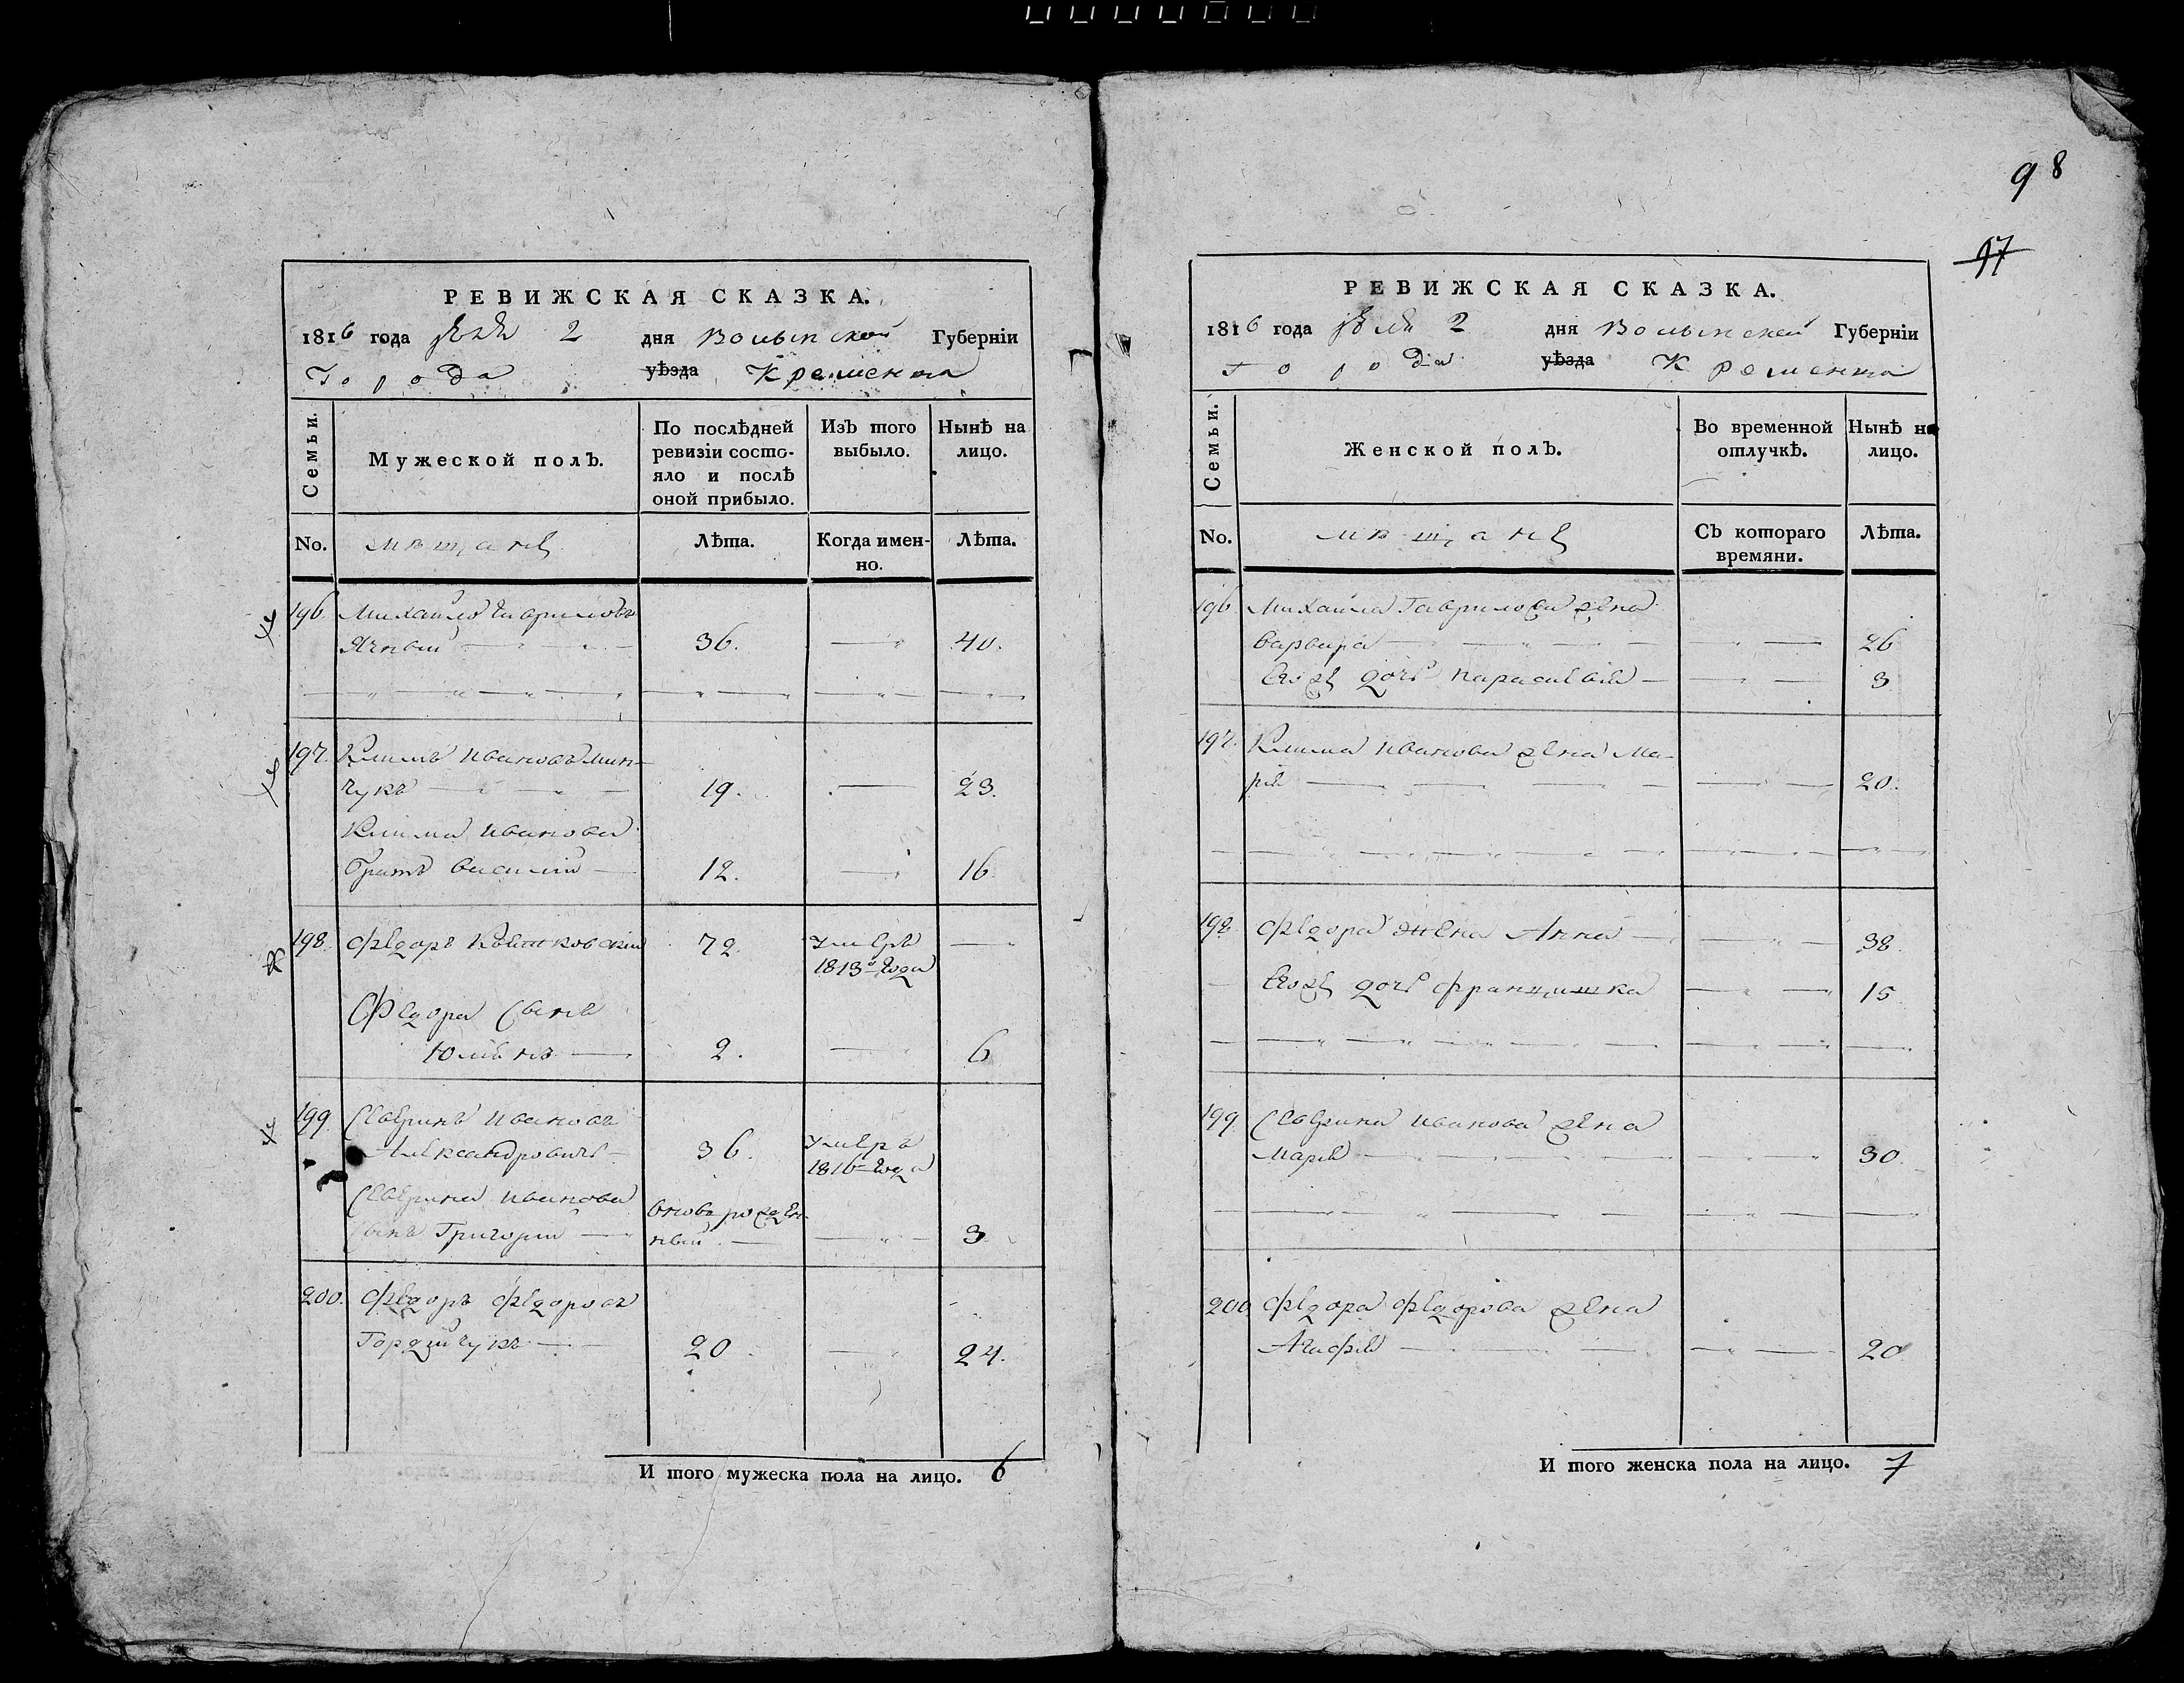 98
97
РЕВИЖСКАЯ СКАЗКА.
1816 года Юля 2 дня Волынской Губерніи
Города уѣзда Кременца
Семьи.
Мужеской полЪ.
По послѣдней ревизіи состояло и послѣ оной прибыло.
ИзЪ того выбыло.
Нынѣ на лицо.
No. мѣщане Лѣта. Когда именно. Лѣта.
196. Михайло Гавриловъ
Ячный 36. 40.
197. Климъ Ивановъ Мин-
чукъ 19. 23.
Клима Иванова
братъ Василий 12. 16
198. Федоръ 72. умеръ
1813 года
Федора сынъ
Юлиянъ 2. 6
199. Северинъ Ивановъ
Александровичъ 36. умеръ
1816 года
Северина Иванова вновь рожден-
сынъ Григорий ный 3
200. Федоръ Федоровъ
Гордийчукъ 20 24.
И того мужеска пола на лицо. 6
РЕВИЖСКАЯ СКАЗКА.
1816 года Юля 2 дня Волынской Губерніи
Города уѣзда Кременца
Семьи.
Женской полЪ.
Во временной отлучкѣ.
Нынѣ на лицо.
No. мѣщане СЪ котораго времяни. Лѣта.
196 Михайла Гаврилова жена
Варвара 26
Его же дочь Параскевия 3
197. Клима Иванова жена Ма-
рия 20.
198 Федора жена Анна 38
Его же дочь Францишка 15
199 Северина Иванова жена
Мария 30
200 Федора Федорова жена
Агафия 20
И того женска пола на лицо. 7